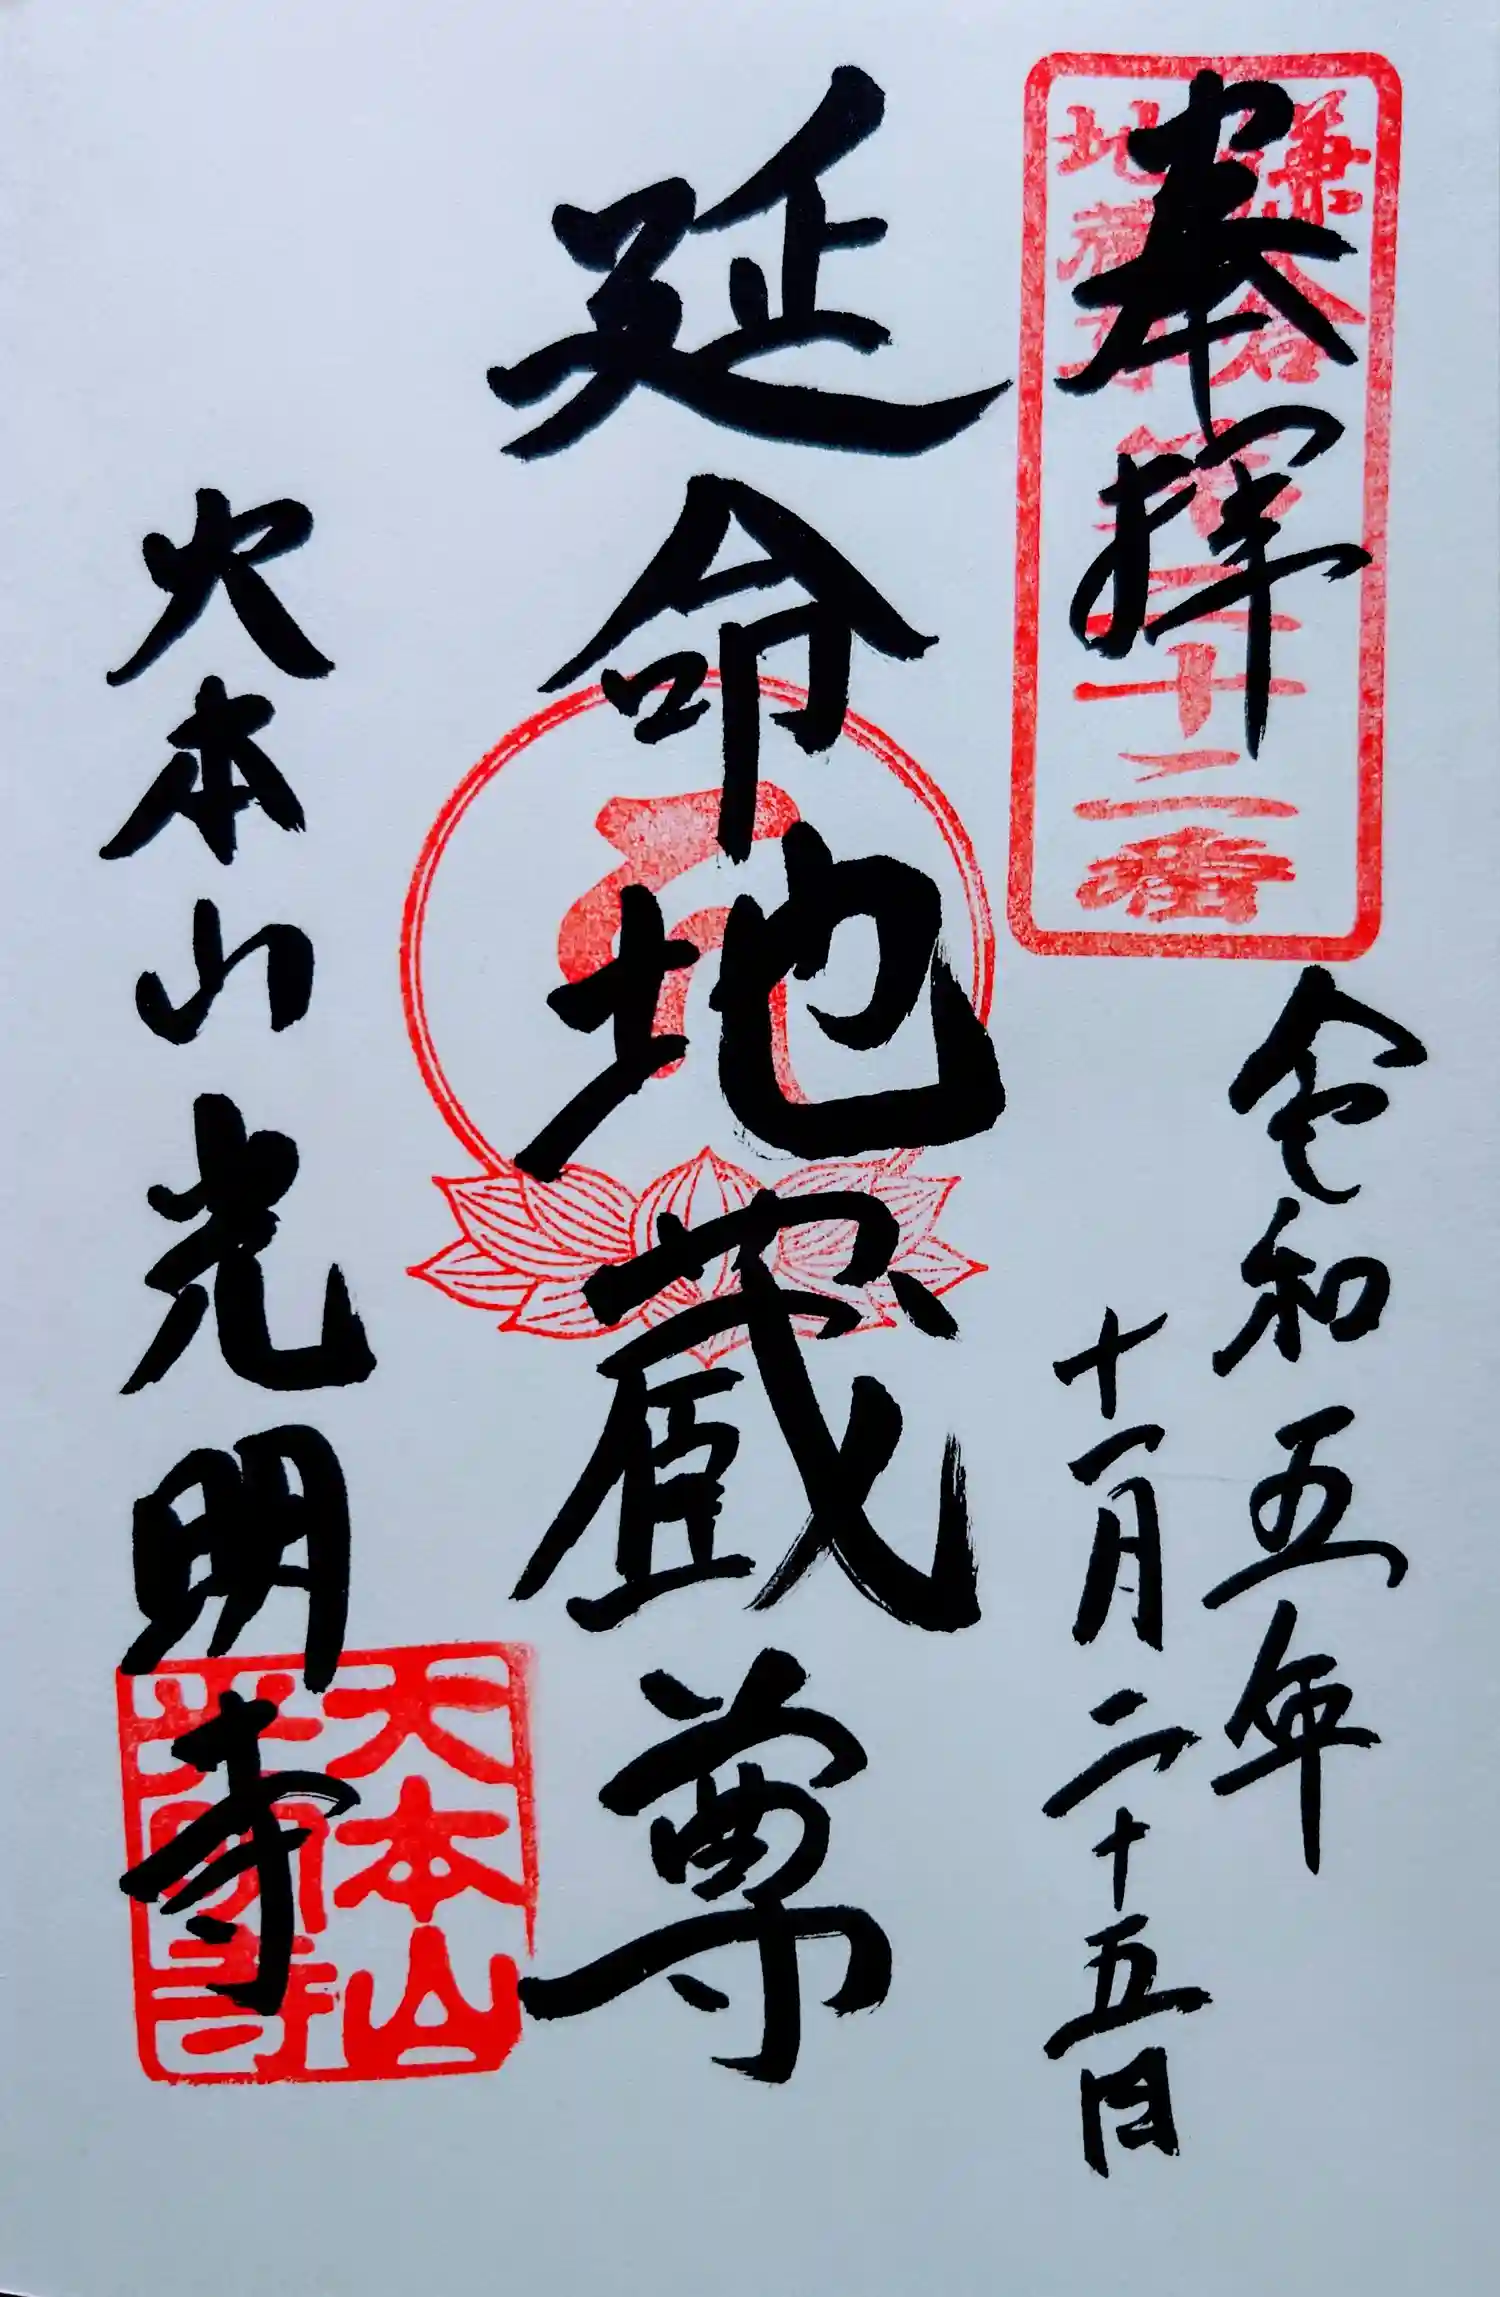 奉拝
鎌倉
地蔵尊
第二十二番
令和五年
十一月二十五日
延命地蔵尊
大本山光明寺
天本山
光明寺